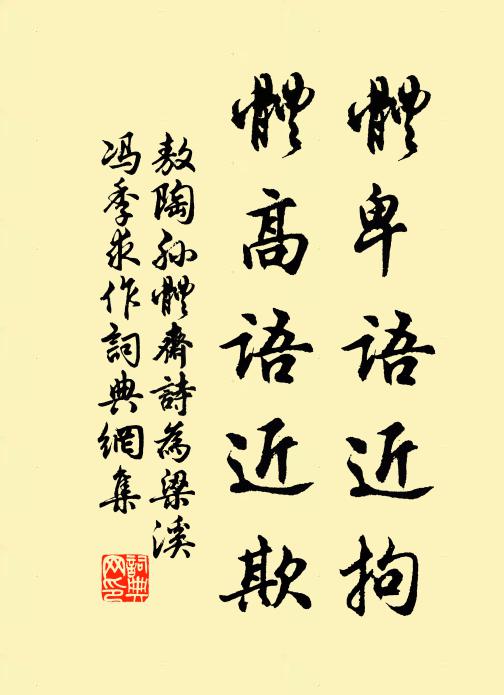 體卑語近拘
體高語近欺
敖陶孫體齋詩為梁溪
馮季求作詞典網集
詞典网印